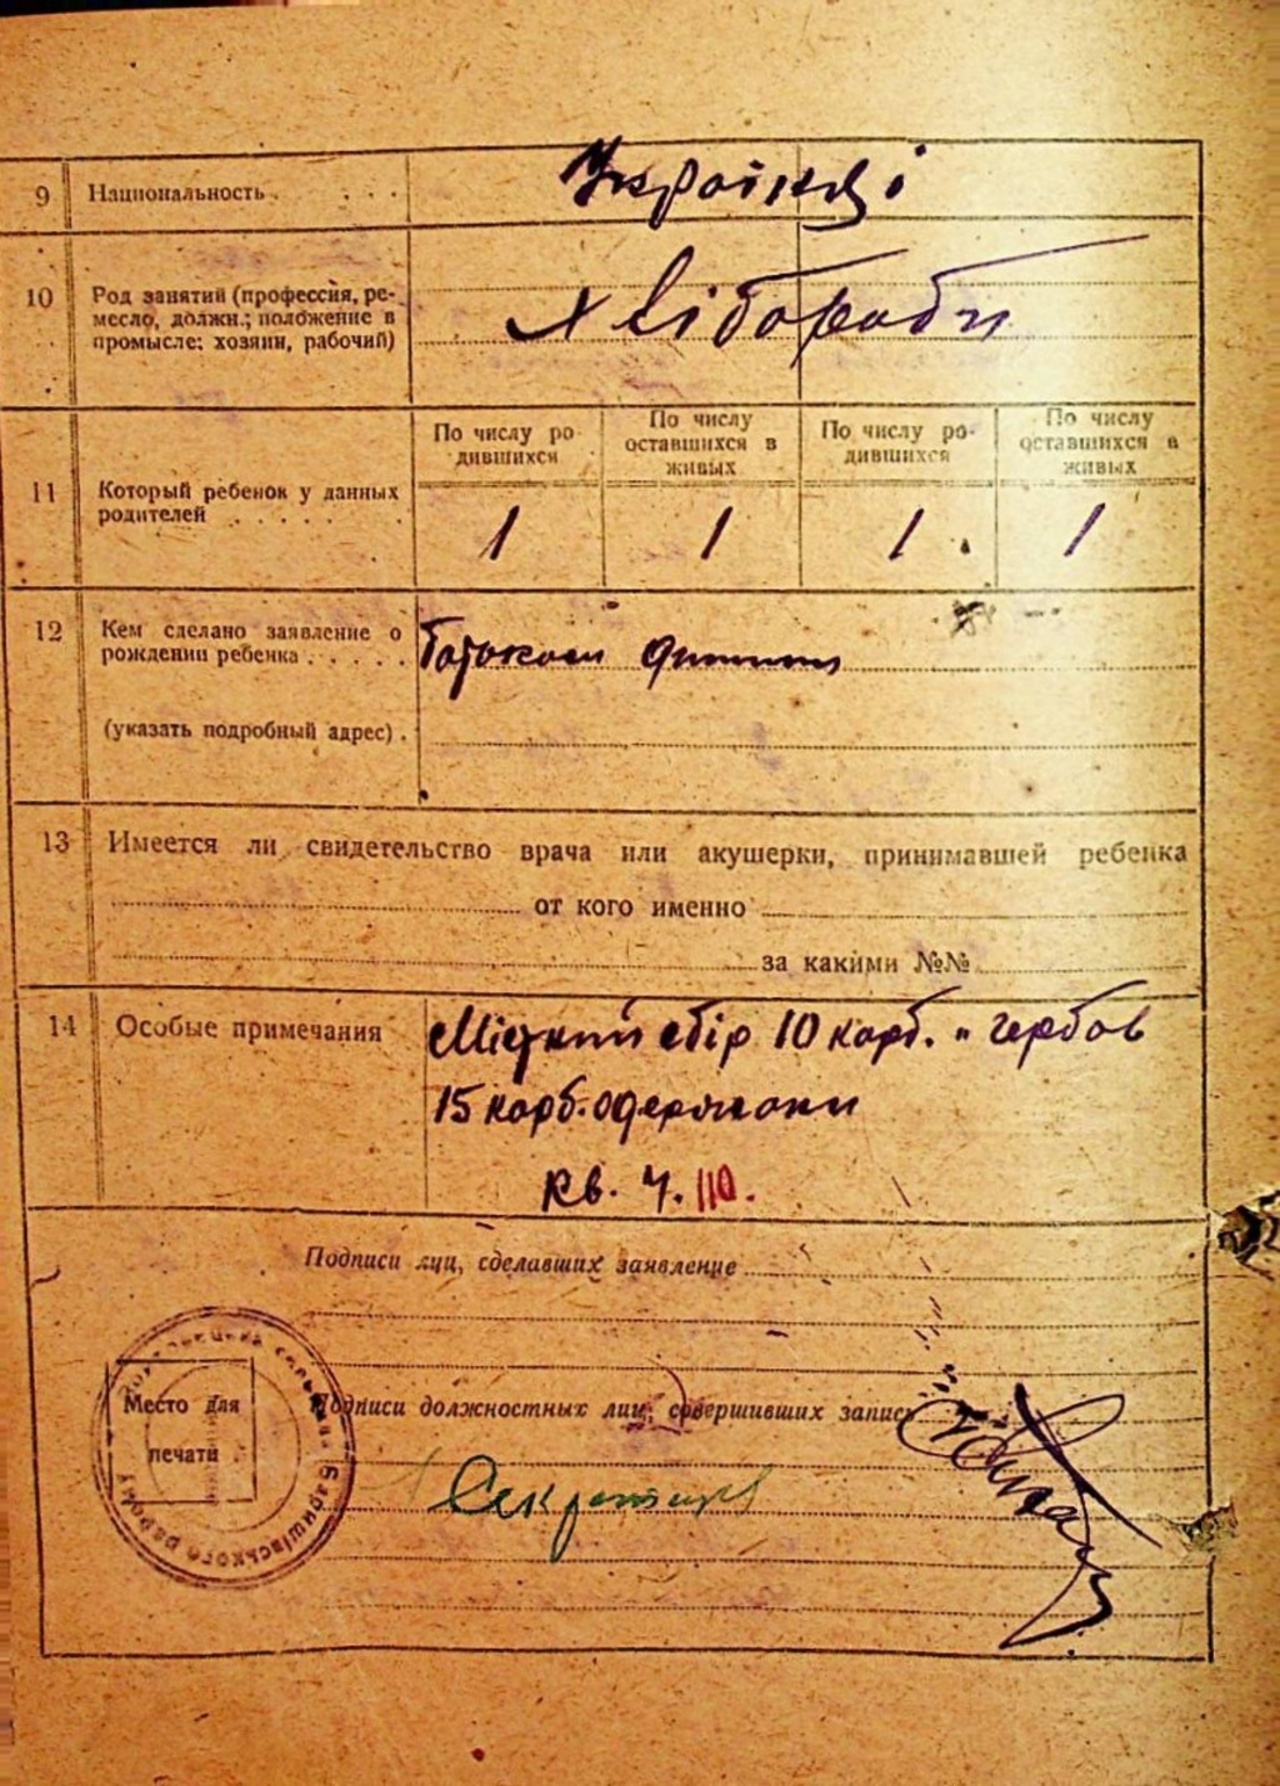 9 Национальность . . . . Українці
10 Род занятий (профессия, ре-
месло, должн.; положение в
промысле: хозяин, рабочий)
Хлібороби
По числу ро-
дившихся
По числу
оставшихся в
живых
По числу ро-
дившихся
По числу
оставшихся в
живых
11 Который ребенок у данных
родителей . . . . . .
1 1 1 1
12 Кем сделано заявление о
рождении ребенка . . . . . Батьком дитини
(указать подробный адрес) .
13 Имеется ли свидетельство врача или акушерки, принимавшей ребенка
от кого именно
за какими №№
14 Особые примечания
збір 10 карб. и гербов
15 карб. одержани
кв. ч. 110.
Подписи лиц, сделавших заявление
Место для
печати
Подписи должностных лиц, совершивших запись
Секретар
Баришівського району